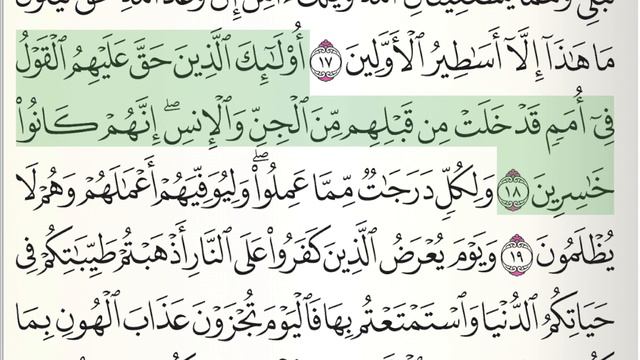 مَا هَٰذَآ إِلَّآ أَسَٰطِيرُ ٱلْأَوَّلِينَ ١٧ أُو۟لَٰٓئِكَ ٱلَّذِينَ حَقَّ عَلَيْهِمُ ٱلْقَوْلُ
فِىٓ أُمَمٍ قَدْ خَلَتْ مِن قَبْلِهِم مِّنَ ٱلْجِنِّ وَٱلْإِنسِ ۖ إِنَّهُمْ كَانُوا۟
خَٰسِرِينَ ١٨ وَلِكُلٍّ دَرَجَٰتٌ مِّمَّا عَمِلُوا۟ ۖ وَلِيُوَفِّيَهُمْ أَعْمَٰلَهُمْ وَهُمْ لَا
يُظْلَمُونَ ١٩ وَيَوْمَ يُعْرَضُ ٱلَّذِينَ كَفَرُوا۟ عَلَى ٱلنَّارِ أَذْهَبْتُمْ طَيِّبَٰتِكُمْ فِى
حَيَاتِكُمُ ٱلدُّنْيَا وَٱسْتَمْتَعْتُم بِهَا فَٱلْيَوْمَ تُجْزَوْنَ عَذَابَ ٱلْهُونِ بِمَا